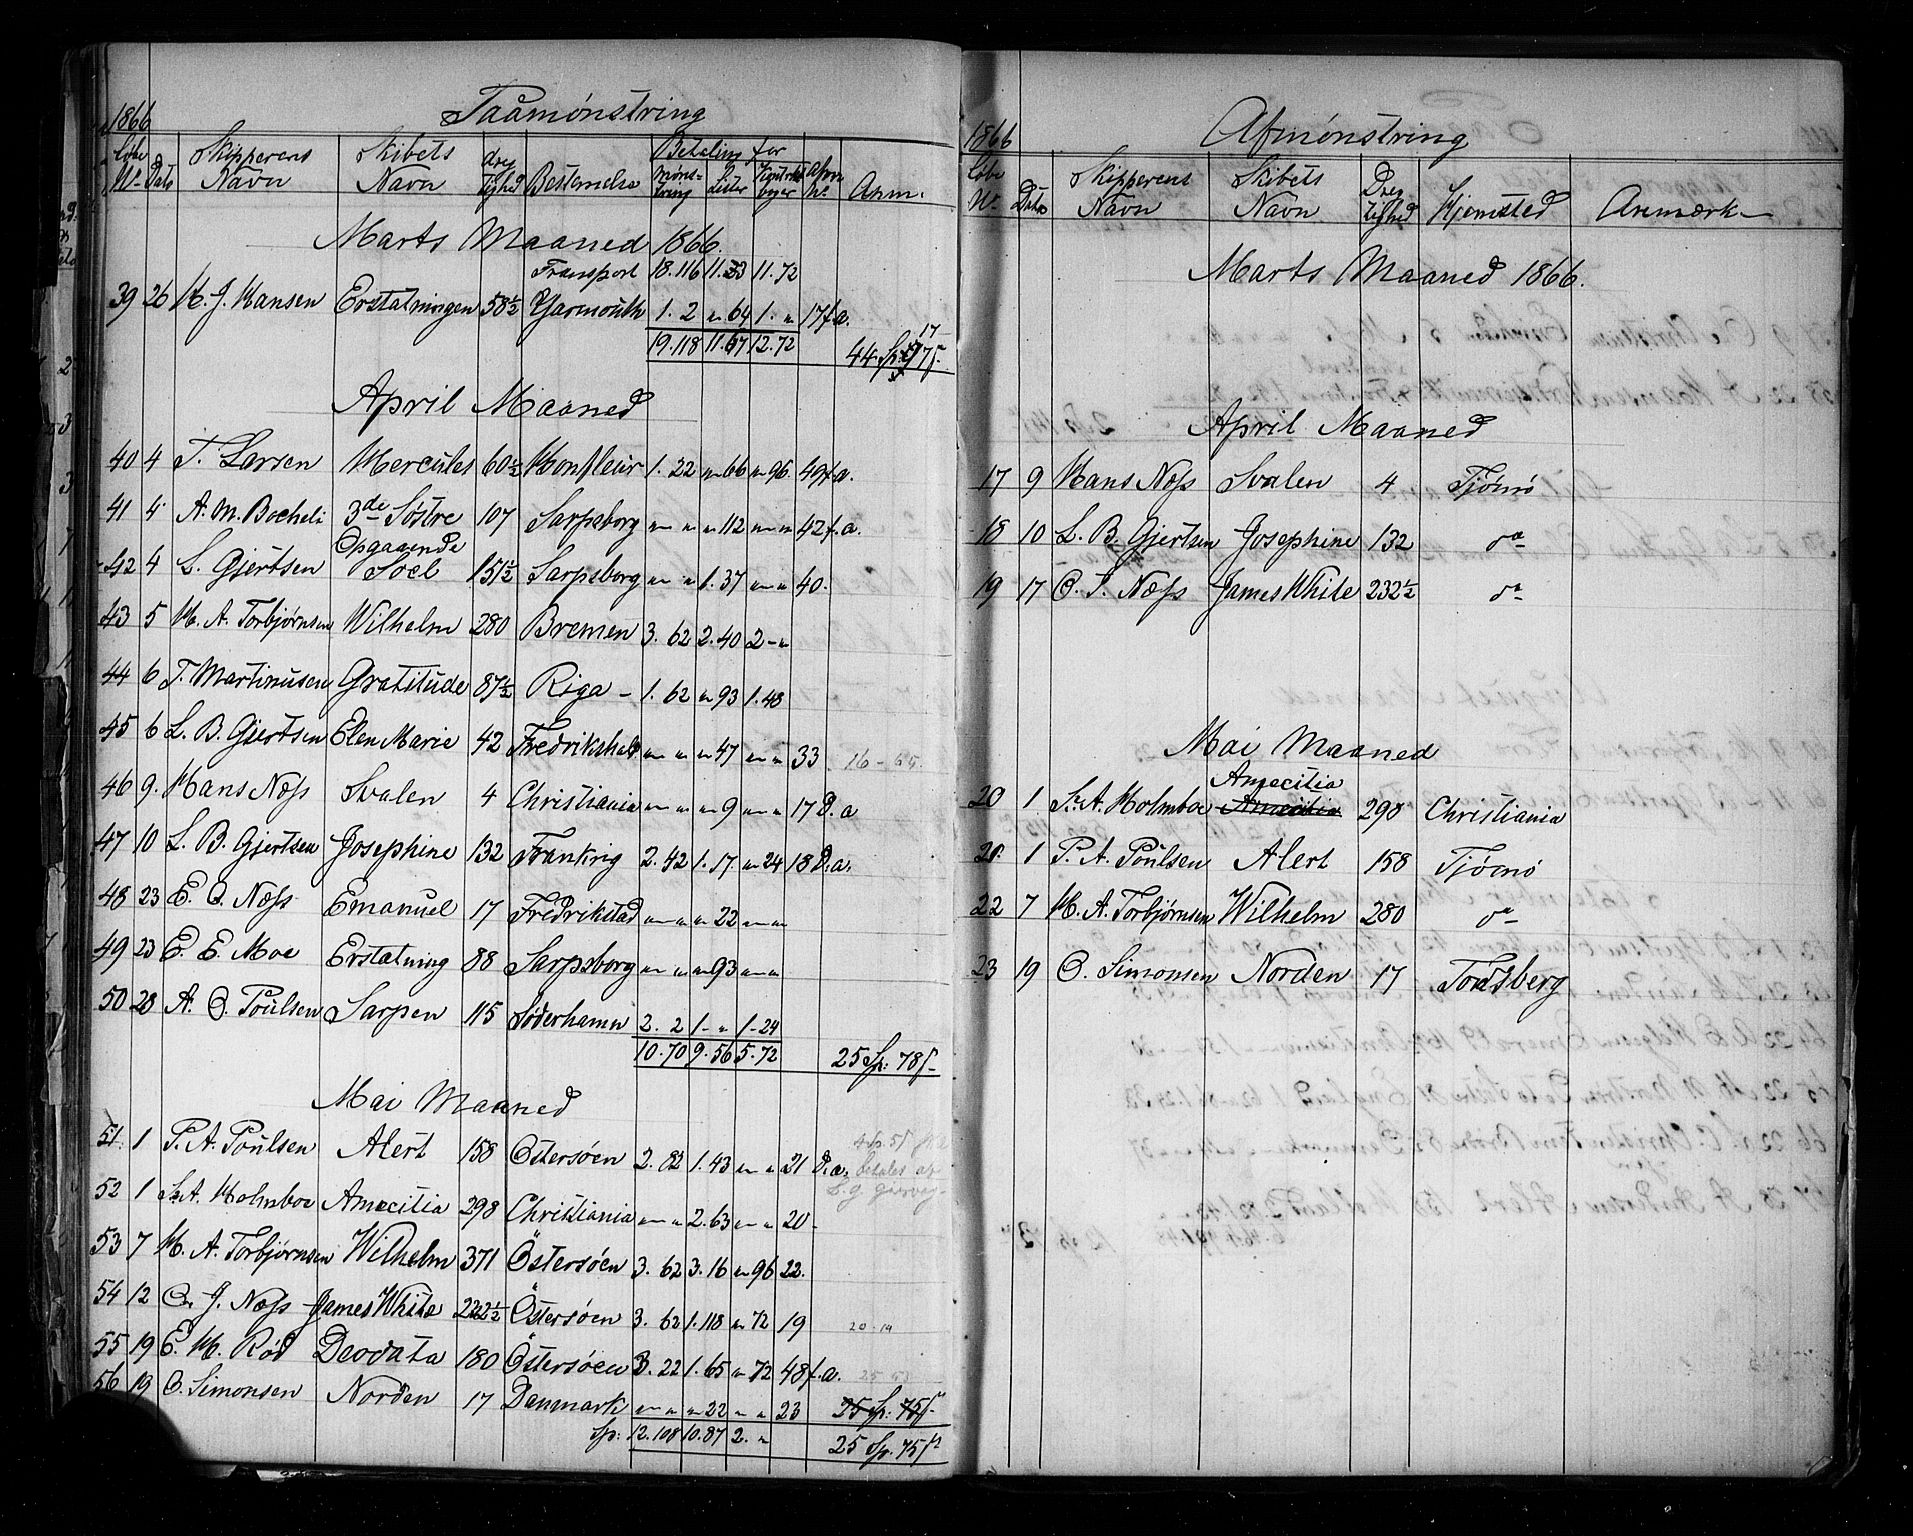 1866
Paamønstring
Løbe No Dato Skipperens Navn Skibets Navn dregtighed Bestemelse Betaling for Mønstring Lister Afm No. Anm.
Marts Maaned 1866.
Transport 18.116 11.23 11.72
39 26 H. J. Hansen Erstatningen 58½ Yarmouth 1. 2 " 64 1. " 17 f.a.
19.118 11.87 12.72 44 Sp: 17
April Maaned
40 4 T. Larsen Hercules 60½ Honfleur 1. 22 " 66 " 96. 49 f.a.
41 4 A. M. Bocheli 3de Søstre 107 Sarpsborg " " " 112 " " 42 f.a.
42 4 L. Gjertsen Opgaaende Soel 151½ Sarpsborg " " 1. 37 " " 40.
43 5 H. A. Torbjørnsen Wilhelm 280 Bremen 3. 62 2. 40 2 - "
44 6 T. Martinusen Gratitude 87½ Riga - 1. 62 " 93 1. 48
45 6 L. B. Gjertsen Elen Marie 42 Fredrikshald " " " 47 " " 33
46 9. Hans Næss Svalen 4 Christiania " " " 9 " " 17 D.a
47 10 L. B. Gjertsen Josephine 132 Frankrig 2. 42 1. 17. " 24 18 D.a.
48 23 E. O. Næss Emanuel 17 Fredrikstad " " " 22 " "
49 23 E. E. Moe Erstatning 88 Sarpsborg " " " 93 " "
50 28 A. O. Poulsen Sarpen 115 Söderhamn 2. 2 1 - " 1 - 24
10.70 9.56 5.72 25 Sp: 78 ſ
Mai Maaned
51 1 P. A. Poulsen Alert 158 Östersöen 2. 82 1. 43 " " 21 D.a.
52 1 S. A. Holmboe Amecitia 298 Christiania " " 2. 63 " " 20 -
53 7 H. A. Torbjørnsen Wilhelm 371 Östersöen 3. 62 3. 16 " 96 22.
54 12 O. J. Næss James White 232½ Östersöen 3. 62 1. 118 " 72 19 20 - 19
55 19 E. H. Rød Deodata 180 Östersöen 3. 22 1. 65 " 72 48 f.a.
56 19 O. Simonsen Norden 17 Danmark " " " 22 " " 23 25 Sp: 75 ſ
Sp: 12.108 10.87 2. " 25 Sp. 75 ſ
1866
Afmønstring
Løbe No Dato Skipperens Navn Skibets Navn Dregtighed Hjemsted Anmærk
Marts Maaned 1866.
April Maaned
17 9 Hans Næss Svalen 4 Tjømø
18 10 L. B. Gjertsen Josephine 132 do
19 17 O. J. Næss James White 232½ do
Mai Maaned
Amecitia
20 1 S. A. Holmboe Amecitia 298 Christiania
21. 1 P. A. Poulsen Alert 158 Tjømø
22 7 H. A. Torbjørnsen Wilhelm 280 do
23 19 O. Simonsen Norden 17 Tønsberg